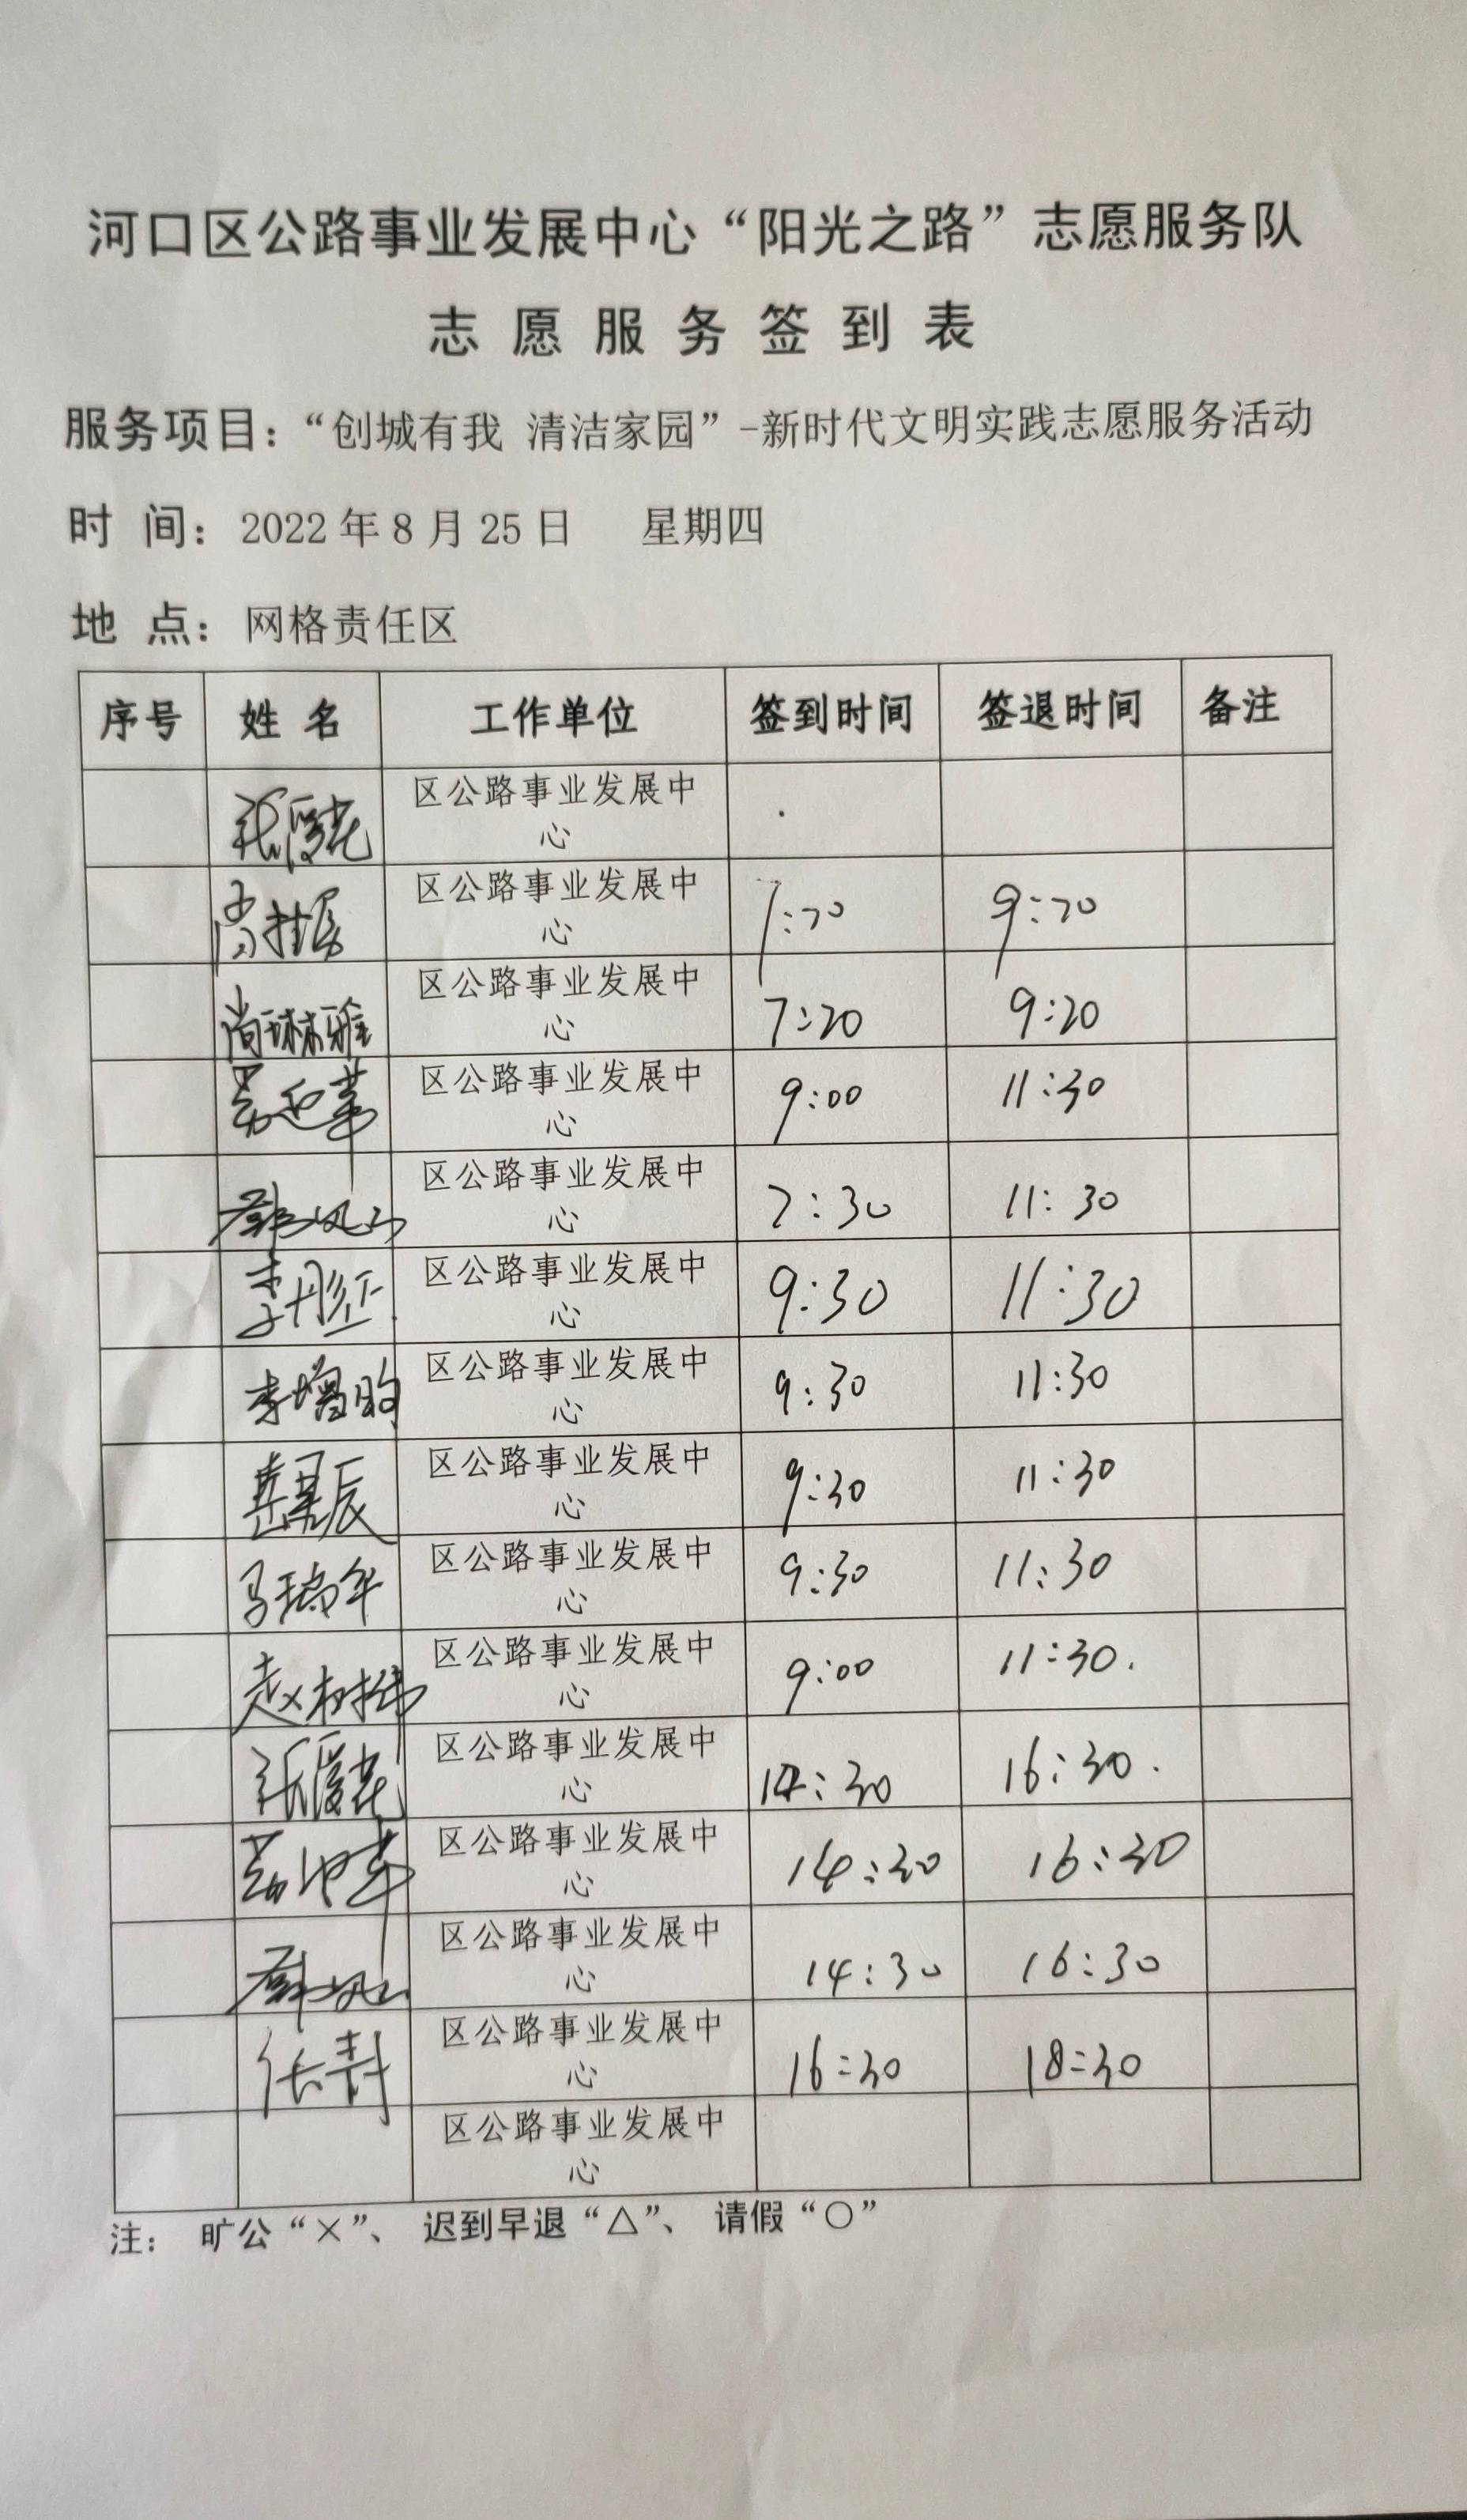 河口区公路事业发展中心“阳光之路”志愿服务队
志愿服务签到表
服务项目：“创城有我 清洁家园”-新时代文明实践志愿服务活动
时 间：2022年8月25日 星期四
地 点：网格责任区
序号 姓名 工作单位 签到时间 签退时间 备注
区公路事业发展中
心
区公路事业发展中
心 9:20
尚琳雅 区公路事业发展中
心 7:20 9:20
区公路事业发展中
心 9:00 11:30
区公路事业发展中
心 7:30 11:30
李彤 区公路事业发展中
心 9:30 11:30
李增昀 区公路事业发展中
心 9:30 11:30
区公路事业发展中
心 9:30 11:30
马瑞年 区公路事业发展中
心 9:30 11:30
赵树伟 区公路事业发展中
心 9:00 11:30.
区公路事业发展中
心 14:30 16:30.
区公路事业发展中
心 14:30 16:30
区公路事业发展中
心 14:30 16:30
任青 区公路事业发展中
心 16:30 18:30
区公路事业发展中
心
注： 旷公“×”、 迟到早退“△”、 请假“○”